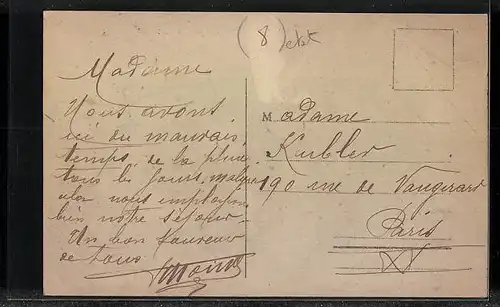 (8) etsk
Madame
Nous avons
ici du mauvais
temps, de la pluie
tous les jours, malgré
cela nous employons
bien notre séjour.
Un bon souvenir
de tous
Madame
Kubler
190 rue de Vaugirard
Paris
XV